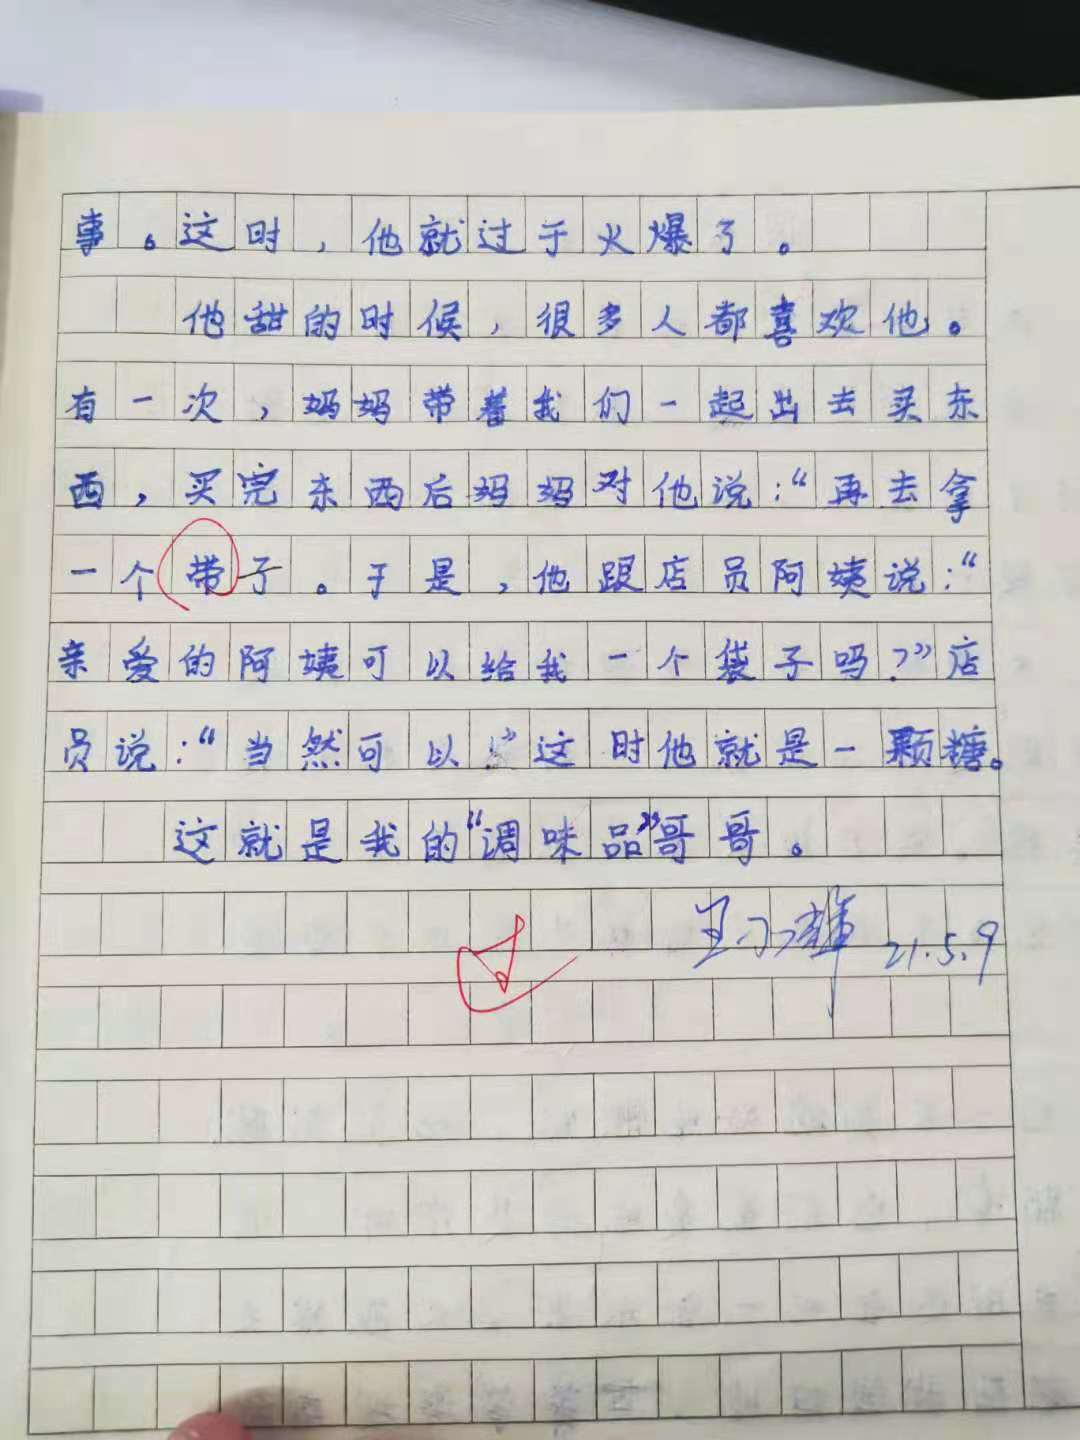 事。这时，他就过于火爆了。
他甜的时候，很多人都喜欢他。
有一次，妈妈带着我们一起出去买东
西，买完东西后妈妈对他说：“再去拿
一个带子。于是，他跟店员阿姨说：“
亲爱的阿姨可以给我一个袋子吗？”店
员说：“当然可以。”这时他就是一颗糖。
这就是我的“调味品”哥哥。
21.5.9